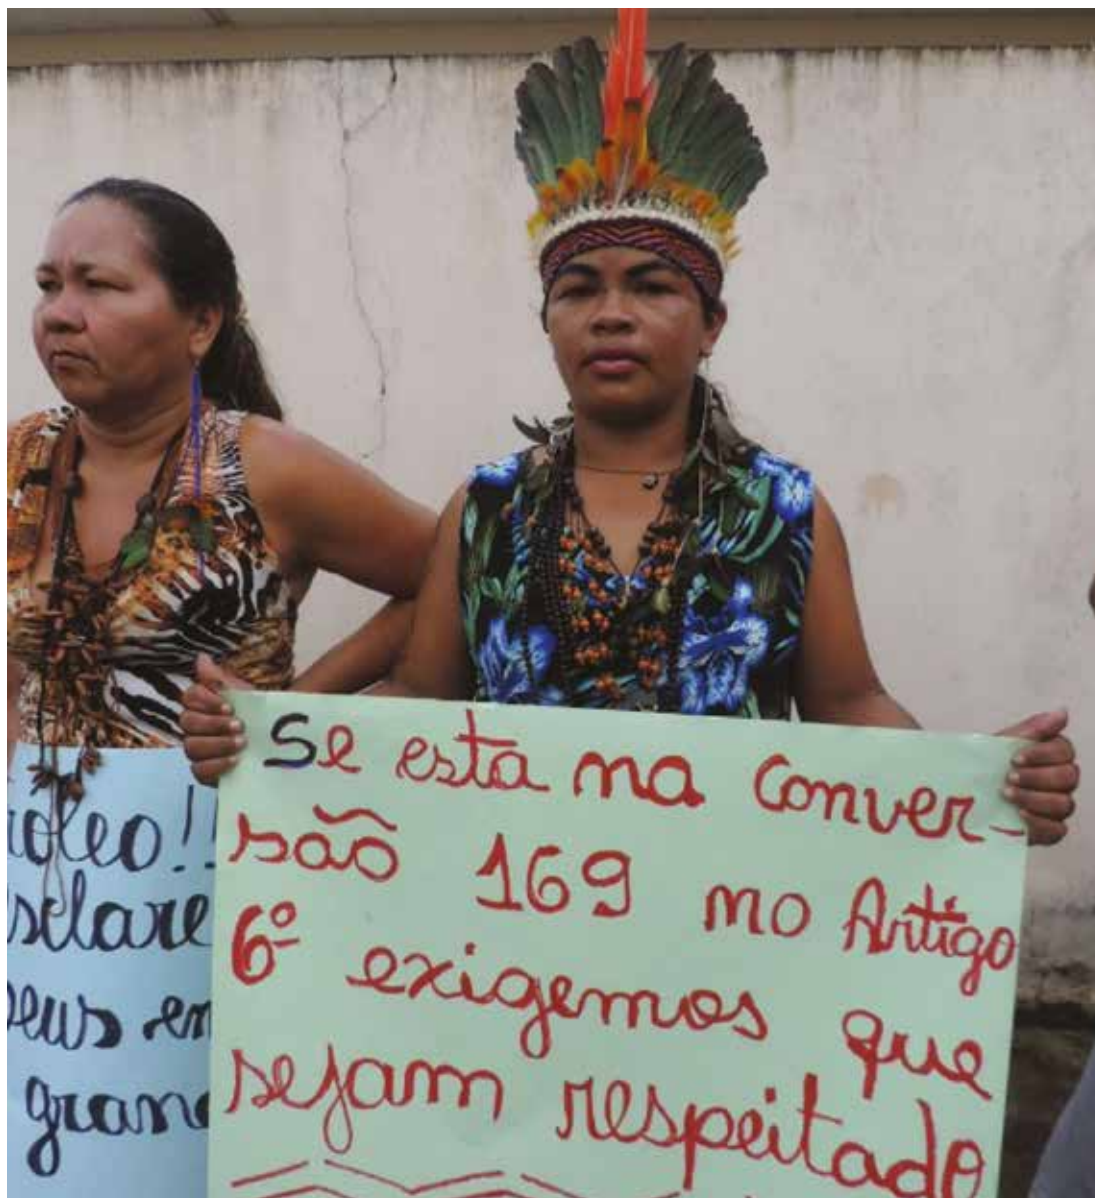 Se esta na Conver-
são 169 no Artigo
6º exigemos que
sejam respeitado
óleo!!
sclare
seus en
grand